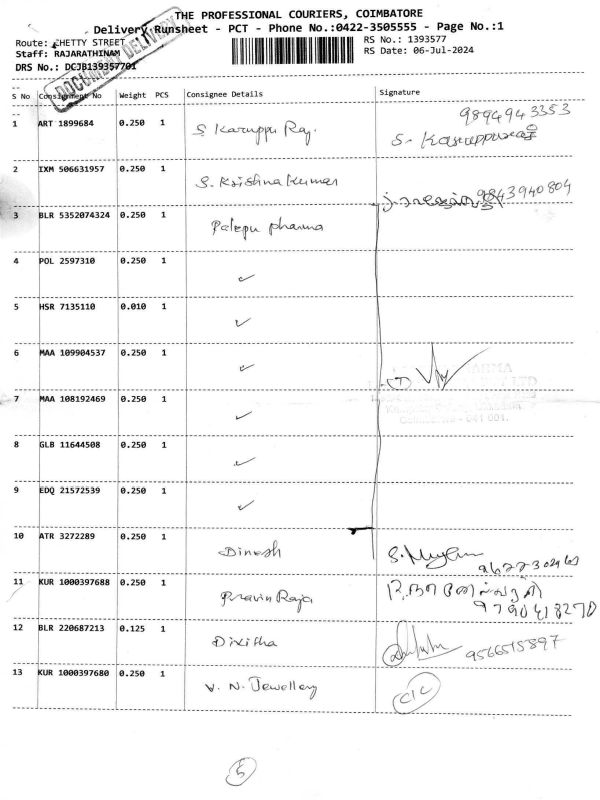 THE PROFESSIONAL COURIERS, COIMBATORE
Delivery Runsheet - PCT - Phone No.:0422-3505555 - Page No.:1
Route: CHETTY STREET
RS No.: 1393577
Staff: RAJARATHINAM
RS Date: 06-Jul-2024
DRS No.: DCJB139357701
DOCUMENT DELIVERY
S No Consignment No Weight PCS Consignee Details Signature
9894943353
1 ART 1899684 0.250 1 S. Karuppu Raj.
2 IXM 506631957 0.250 1 S. Krishna Kumar
9843940804
3 BLR 5352074324 0.250 1 Palepu pharma
4 POL 2597310 0.250 1 ✓
5 HSR 7135110 0.010 1 ✓
6 MAA 109904537 0.250 1 ✓
7 MAA 108192469 0.250 1 ✓
8 GLB 11644508 0.250 1 ✓
9 EDQ 21572539 0.250 1 ✓
10 ATR 3272289 0.250 1 Dinesh
11 KUR 1000397688 0.250 1 Pravin Raja
9790418270
12 BLR 220687213 0.125 1 Dixitha 9566515897
13 KUR 1000397680 0.250 1 V. N. Jewellery CIC
5